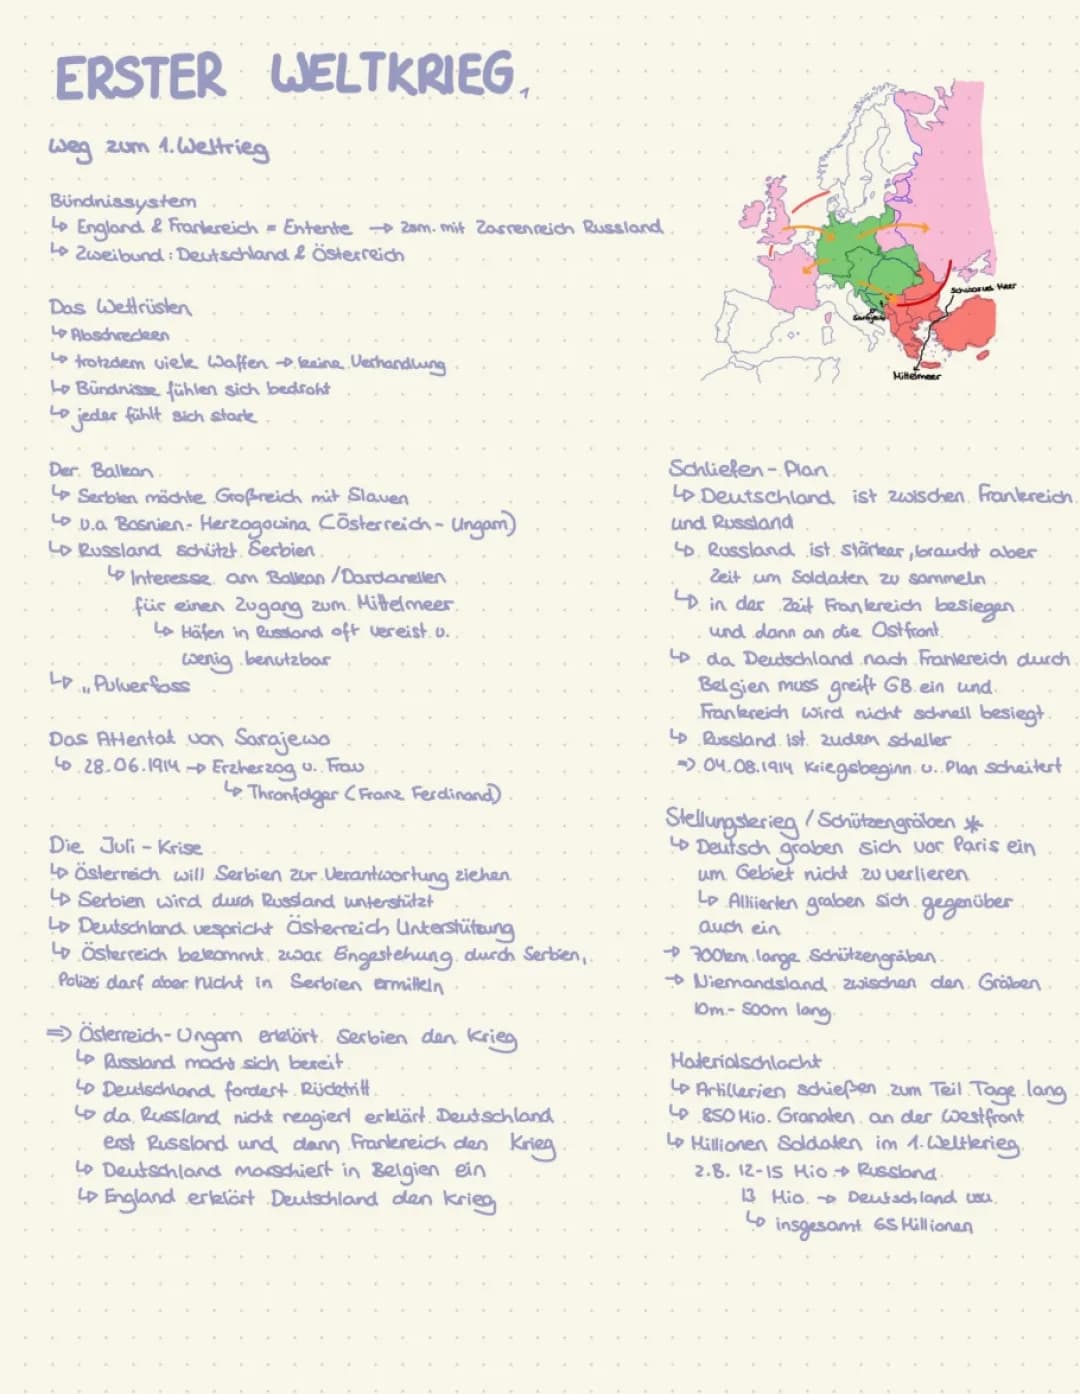 ERSTER WELTKRIEG 1
Weg zum 1. Weltrieg
Bündnissystem
↳ England & Frankereich = Entente → zsm. mit Zarrenreich Russland
↳ Zweibund: Deutschland & Österreich
Das Wettrüsten
↳ Abschrecken
↳ trotzdem viele Waffen → keine Verhandlung
↳ Bündnisse fühlen sich bedroht
↳ jeder fühlt sich stark
Der Balkan
↳ Serbien möchte Großreich mit Slaven
↳ u.a Bosnien-Herzogowina (Österreich-Ungarn)
↳ Russland schützt Serbien
↳ Interesse am Balkan/Dardanellen
für einen Zugang zum Mittelmeer
↳ Häfen in Russland oft vereist u.
wenig benutzbar
↳ „Pulverfass
Das Attentat von Sarajewo
↳ 28.06.1914 → Erzherzog u. Frau
↳ Thronfolger (Franz Ferdinand)
Die Juli-Krise
↳ Österreich will Serbien zur Verantwortung ziehen
↳ Serbien wird durch Russland unterstützt
↳ Deutschland vespricht Österreich Unterstützung
↳ Österreich bekommt zwar Eingestehung durch Serbien,
Polizei darf aber nicht in Serbien ermitteln
=> Österreich-Ungarn erklärt Serbien den Krieg
↳ Russland macht sich bereit
↳ Deutschland fordert Rücktritt
↳ da Russland nicht reagiert erklärt Deutschland
erst Russland und dann Frankreich den Krieg
↳ Deutschland marschiert in Belgien ein
↳ England erklärt Deutschland den Krieg
Schwarzes Meer
Sarajewo
Mittelmeer
Schliefen-Plan
↳ Deutschland ist zwischen Frankreich
und Russland
↳ Russland ist stärker, braucht aber
Zeit um Soldaten zu sammeln
↳ in der Zeit Frankreich besiegen
und dann an die Ostfront
↳ da Deutschland nach Frankreich durch
Belgien muss greift GB ein und
Frankreich wird nicht schnell besiegt
↳ Russland ist zudem scheller
=> 04.08.1914 Kriegsbeginn u. Plan scheitert
Stellungskrieg / Schützengräben *
↳ Deutsch graben sich vor Paris ein
um Gebiet nicht zu verlieren
↳ Alliierten graben sich gegenüber
auch ein
→ 700km lange Schützengräben
→ Niemandsland zwischen den Gräben
10m-500m lang
Materialschlacht
↳ Artillerien schießen zum Teil Tage lang
↳ 850 Mio. Granaten an der Westfront
↳ Millionen Soldaten im 1. Weltkrieg
z.B. 12-15 Mio → Russland
13 Mio. → Deutschland usw.
↳ insgesamt 65 Millionen